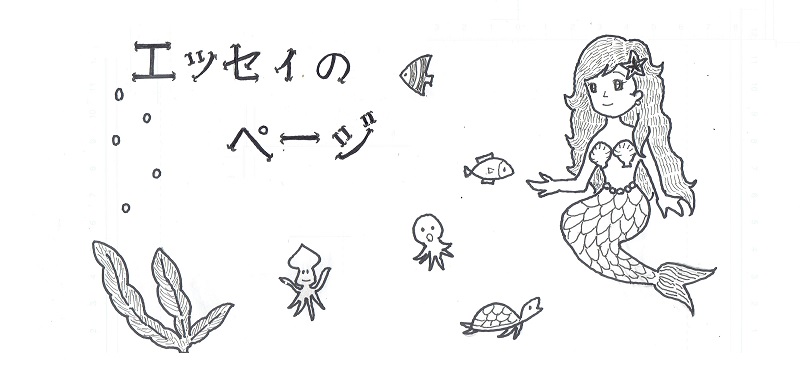 エッセイの
ページ